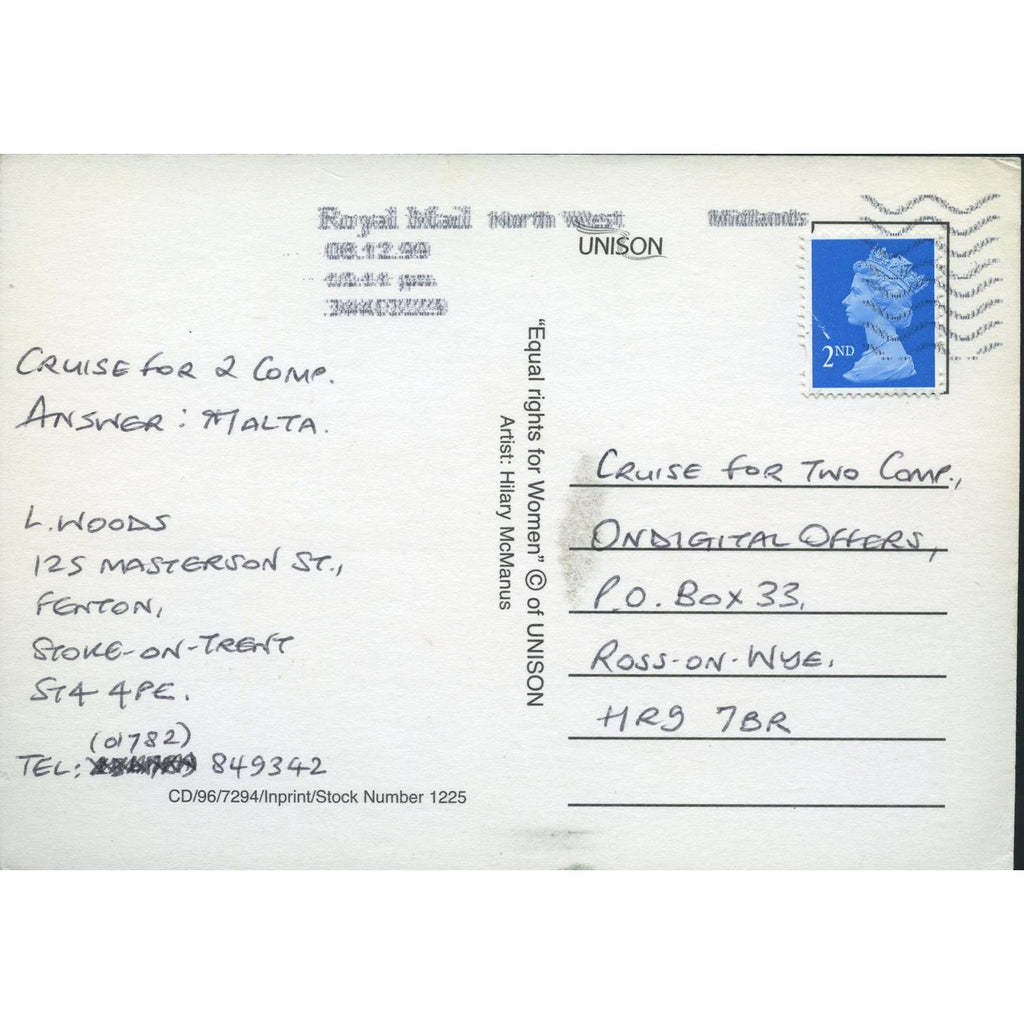 Royal Mail North West Midlands
06.12.99
UNISON
2ND
CRUISE FOR 2 COMP.
ANSWER: MALTA.
L. WOODS
125 MASTERSON ST.,
FENTON,
STOKE-ON-TRENT
ST4 4PE.
(01782)
TEL: 849342
CD/96/7294/Inprint/Stock Number 1225
"Equal rights for Women" © of UNISON
Artist: Hilary McManus
CRUISE FOR TWO COMP.,
ONDIGITAL OFFERS,
P.O. BOX 33,
ROSS-ON-WYE.
HR9 7BR